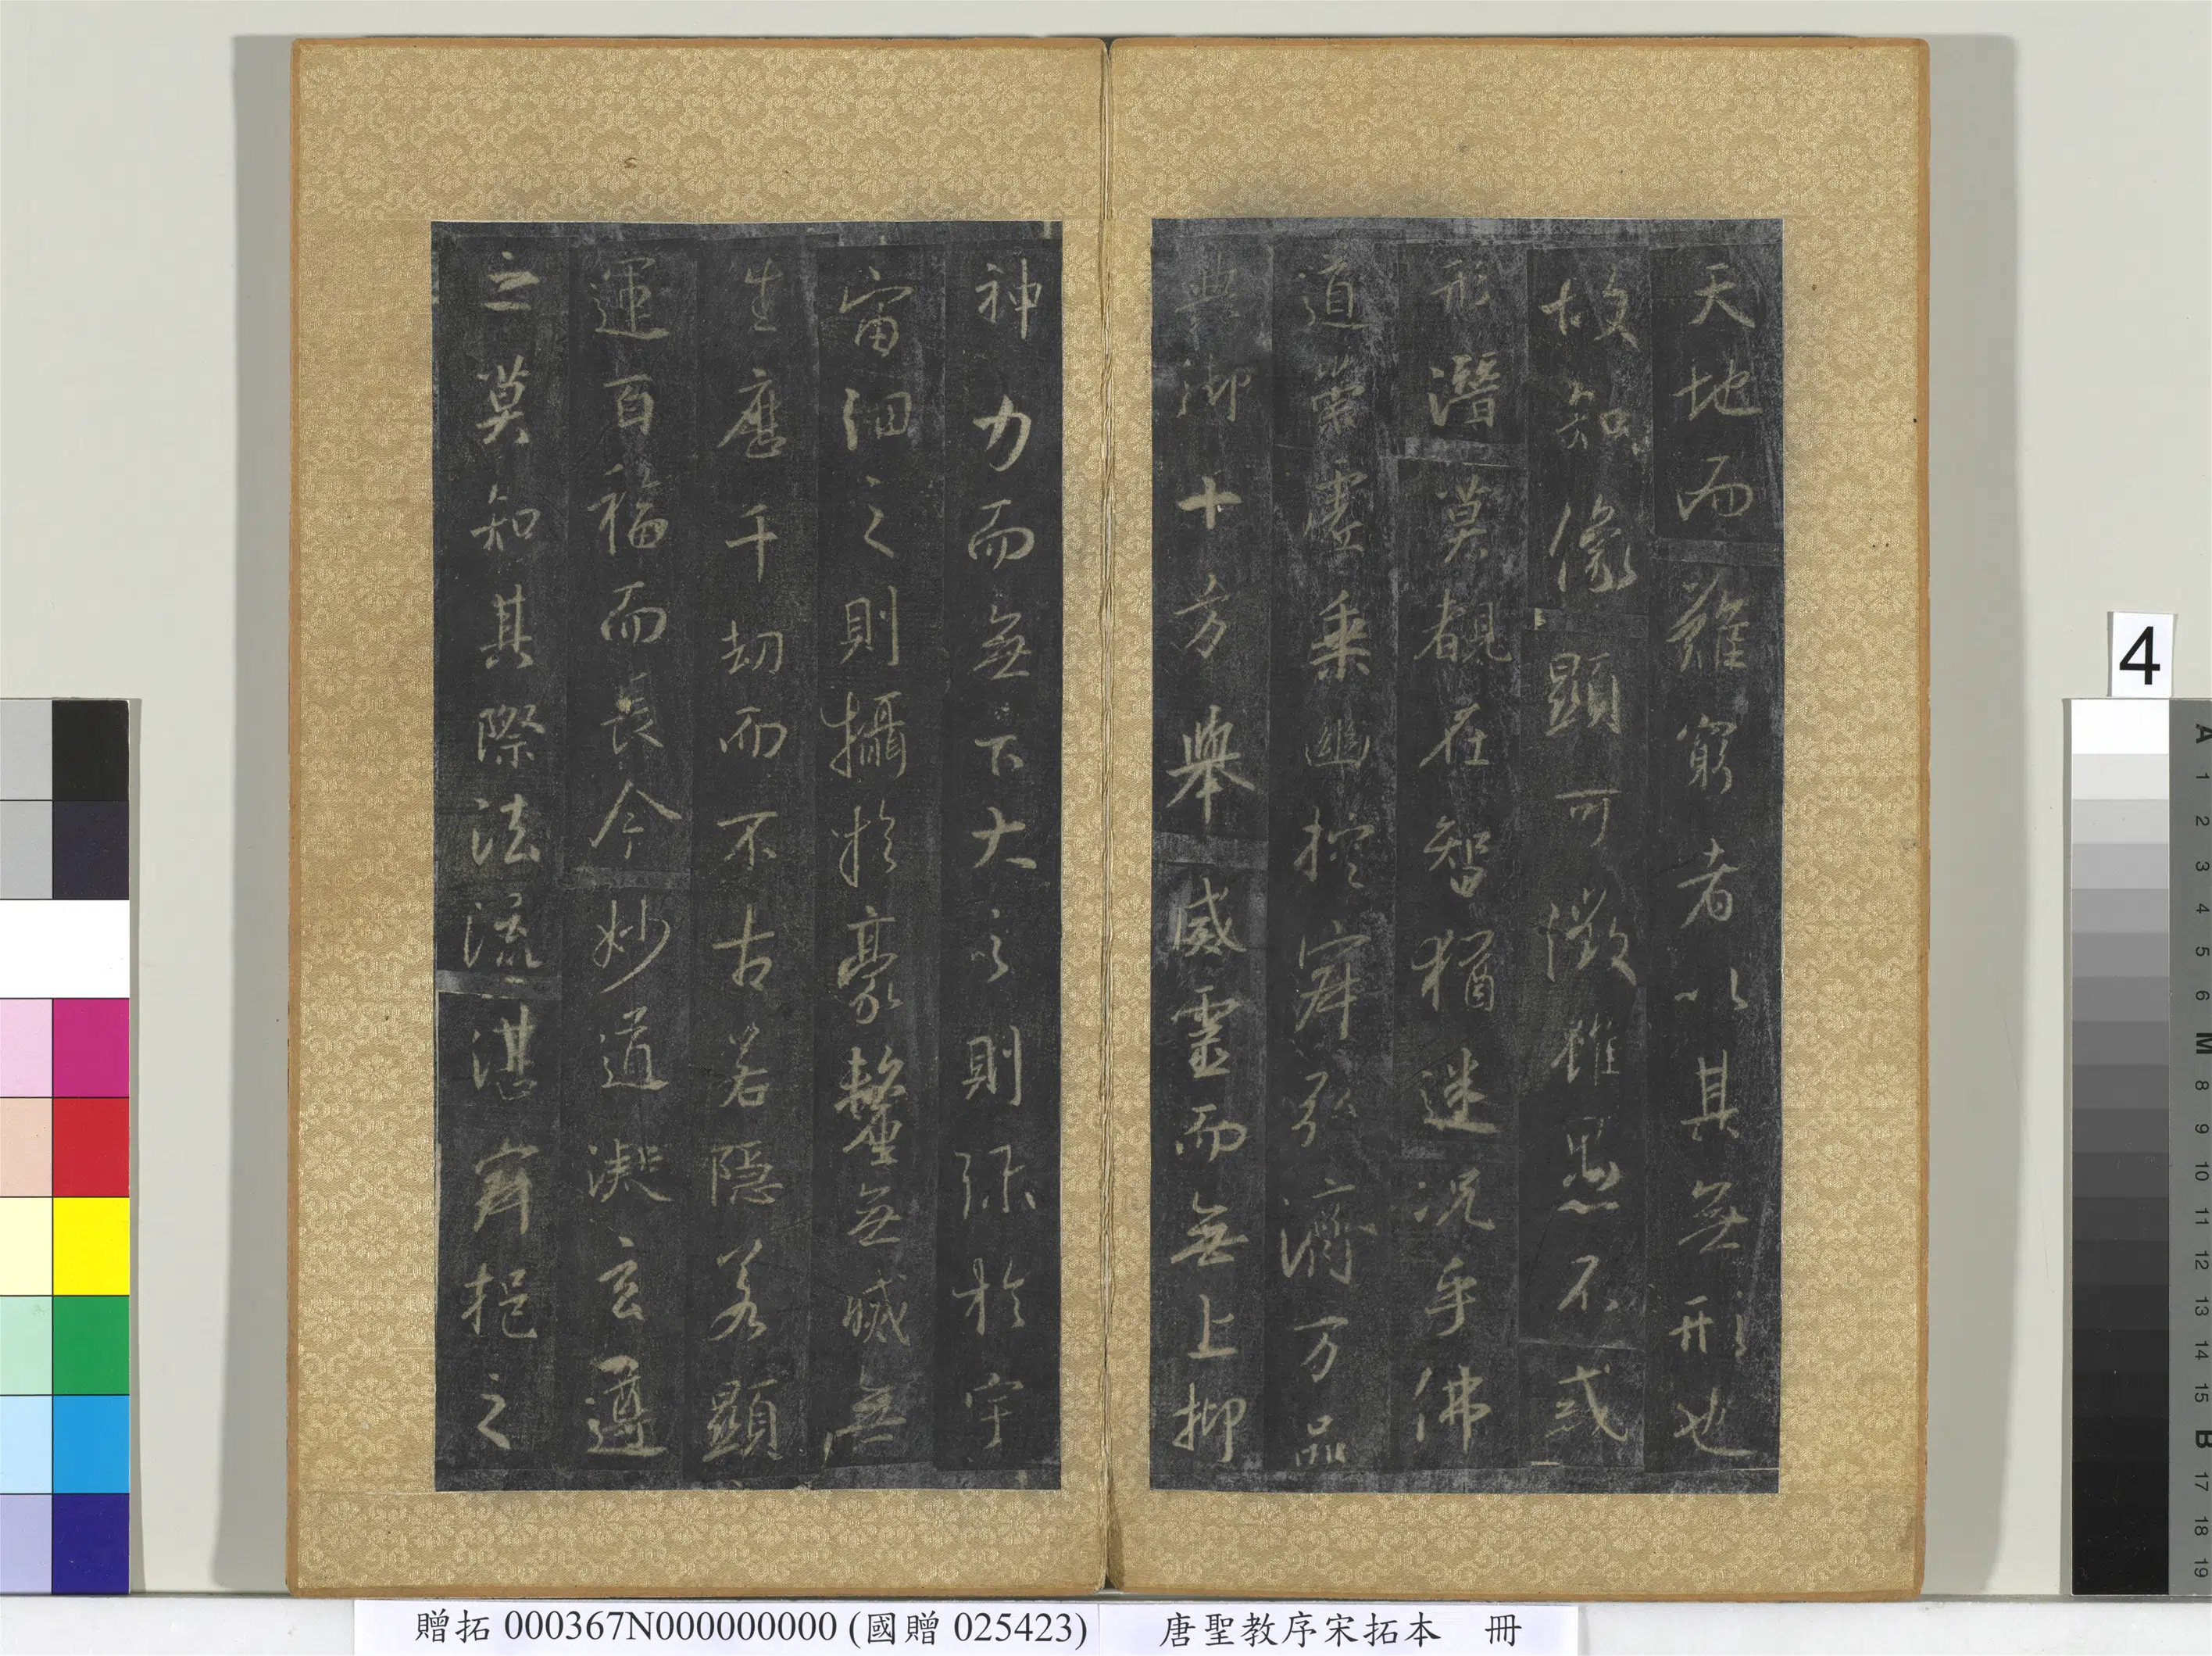 天地而難窮者以其無形也
故知像顯可徵雖愚不惑
形潛莫覩在智猶迷況乎佛
道崇虛乘幽控寂弘濟万品
典御十方舉威靈而無上抑
神力而無下大之則弥於宇
宙細之則攝於豪釐無滅無
生歷千劫而不古若隱若顯
運百福而長今妙道凝玄遵
之莫知其際法流湛寂挹之
4
A 1 2 3 4 5 6 M 8 9 10 11 12 13 14 15 B 17 18 19
贈拓 000367N000000000 (國贈 025423) 唐聖教序宋拓本 冊